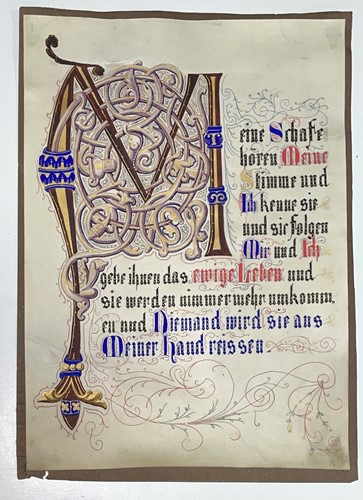 Meine Schafe
hören Meine
Stimme und
Ich kenne sie
und sie folgen
Mir und Ich
gebe ihnen das ewige Leben und
sie werden nimmermehr umkomm,
en und Niemand wird sie aus
Meiner Hand reissen.